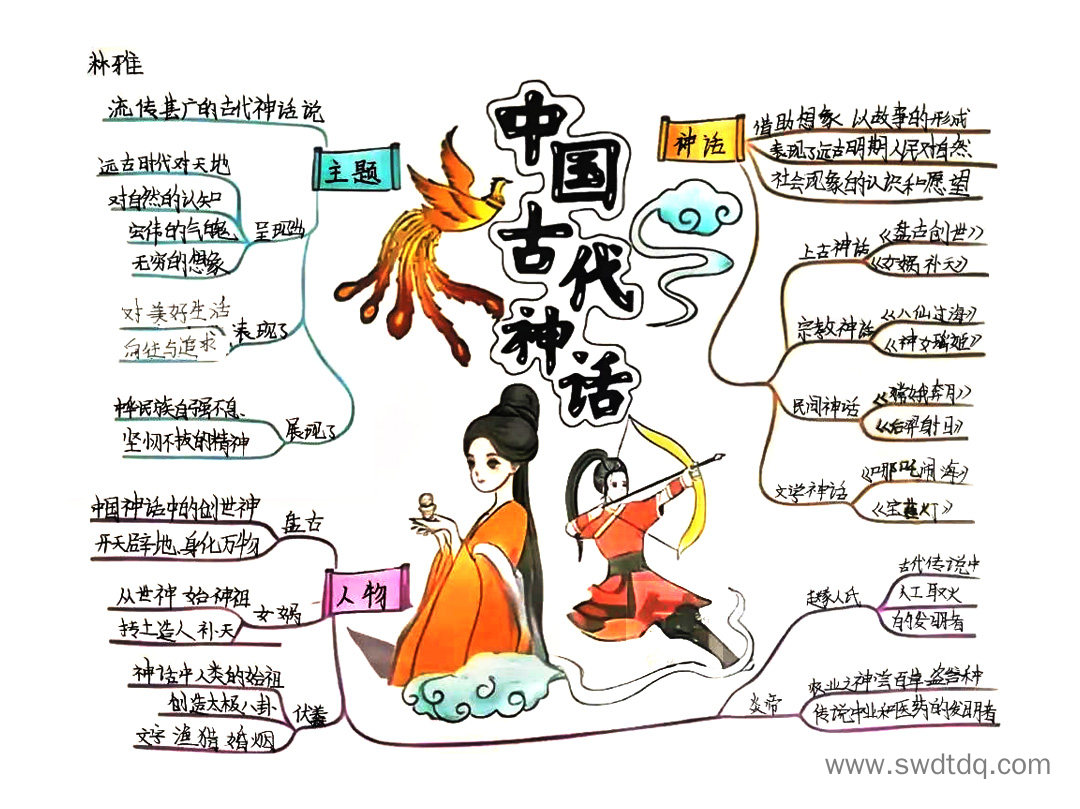 中国古代神话
主题
流传甚广的古代神话说
呈现出
远古时代对天地
对自然的认知
宏伟的气魄
无穷的想象
表现了
对美好生活
向往与追求
展现了
中华民族自强不息
坚韧不拔的精神
神话
借助想象 以故事的形成
表现了远古时期人民对自然
社会现象的认识和愿望
上古神话
《盘古创世》
《女娲补天》
宗教神话
《八仙过海》
《神女瑶姬》
民间神话
《嫦娥奔月》
《后羿射日》
文学神话
《哪吒闹海》
《宝莲灯》
人物
盘古
中国神话中的创世神
开天辟地、身化万物
女娲
从世神 始神祖
抟土造人 补天
伏羲
神话中人类的始祖
创造太极八卦
文字 渔猎 婚姻
人氏
古代传说中
人工取火
的发明者
炎帝
农业之神尝百草
传说 业和医药的发明者
www.swdtdq.com